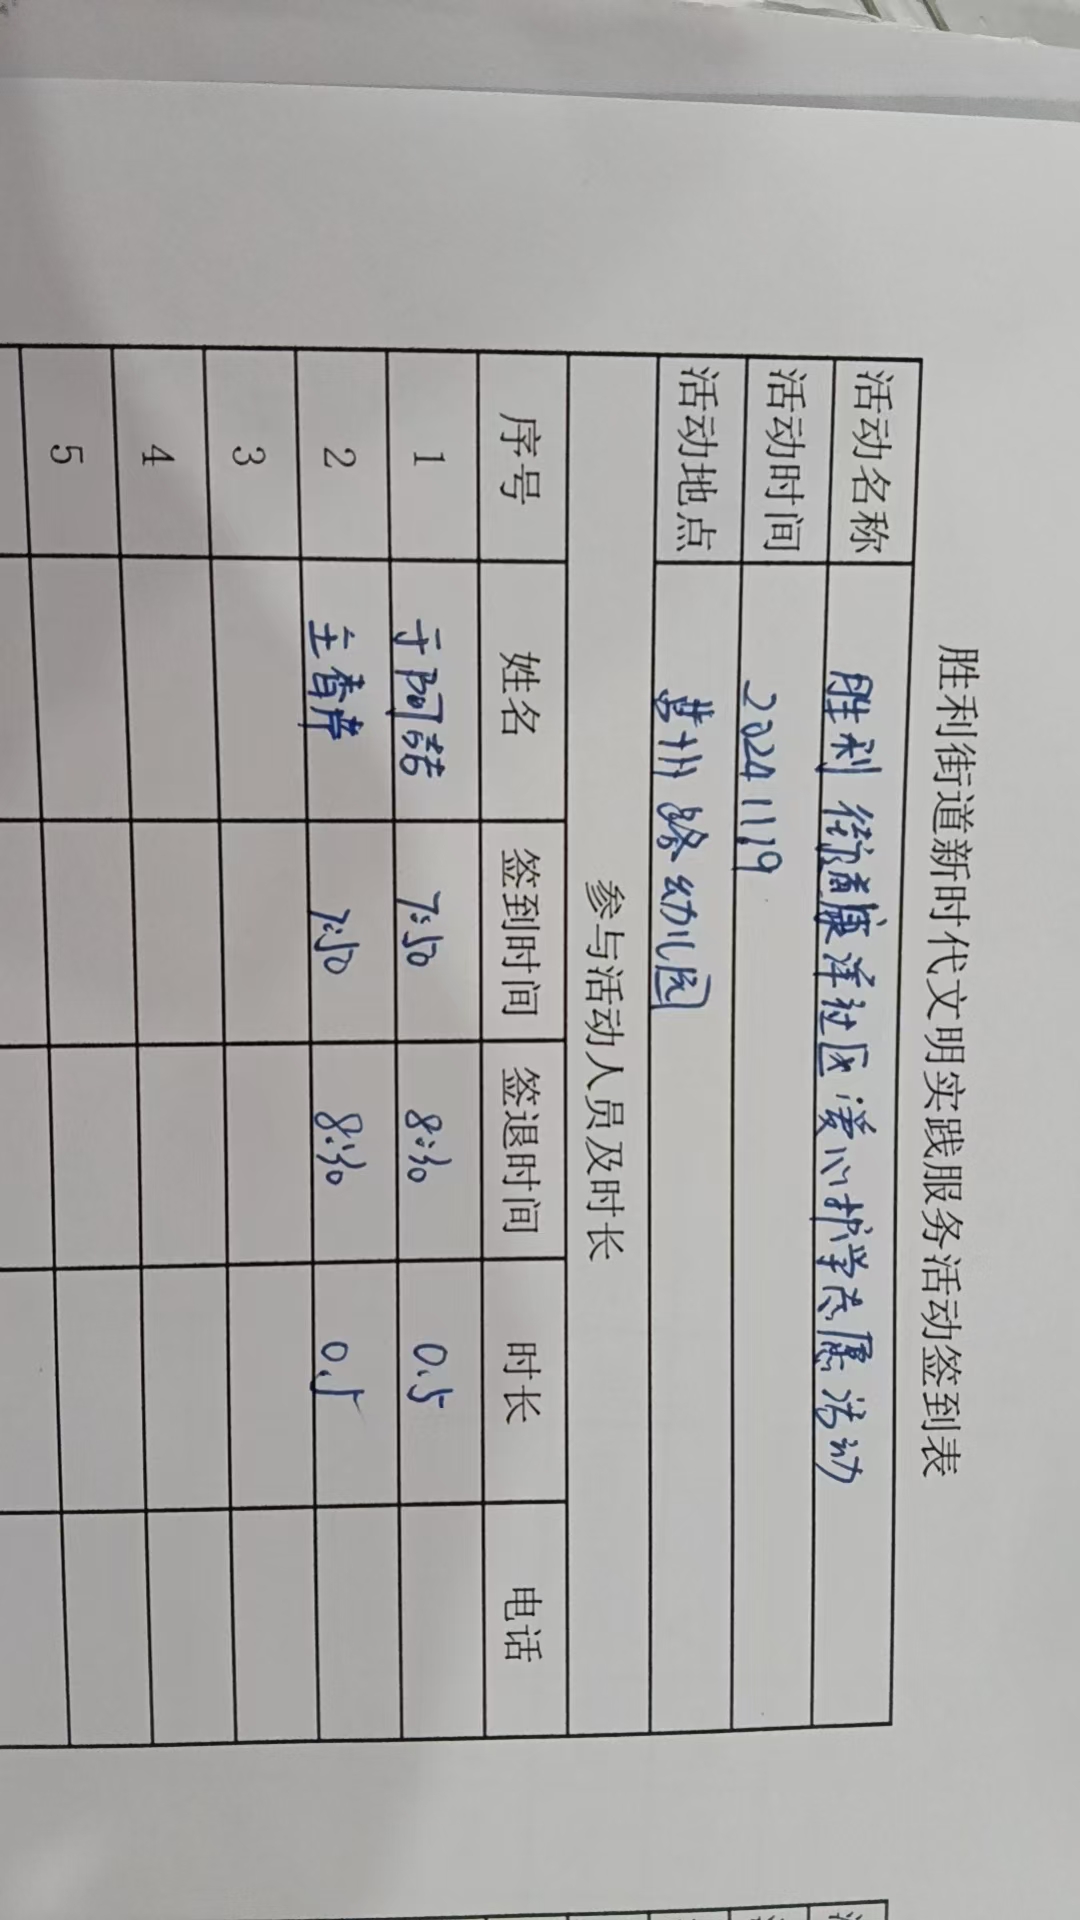 胜利街道新时代文明实践服务活动签到表
活动名称 胜利街道康洋社区爱心护学志愿活动
活动时间 20241119
活动地点 州路幼儿园
参与活动人员及时长
序号 姓名 签到时间 签退时间 时长 电话
1 于阿喆 7:50 8:30 0.5
2 王香芹 7:50 8:30 0.5
3
4
5